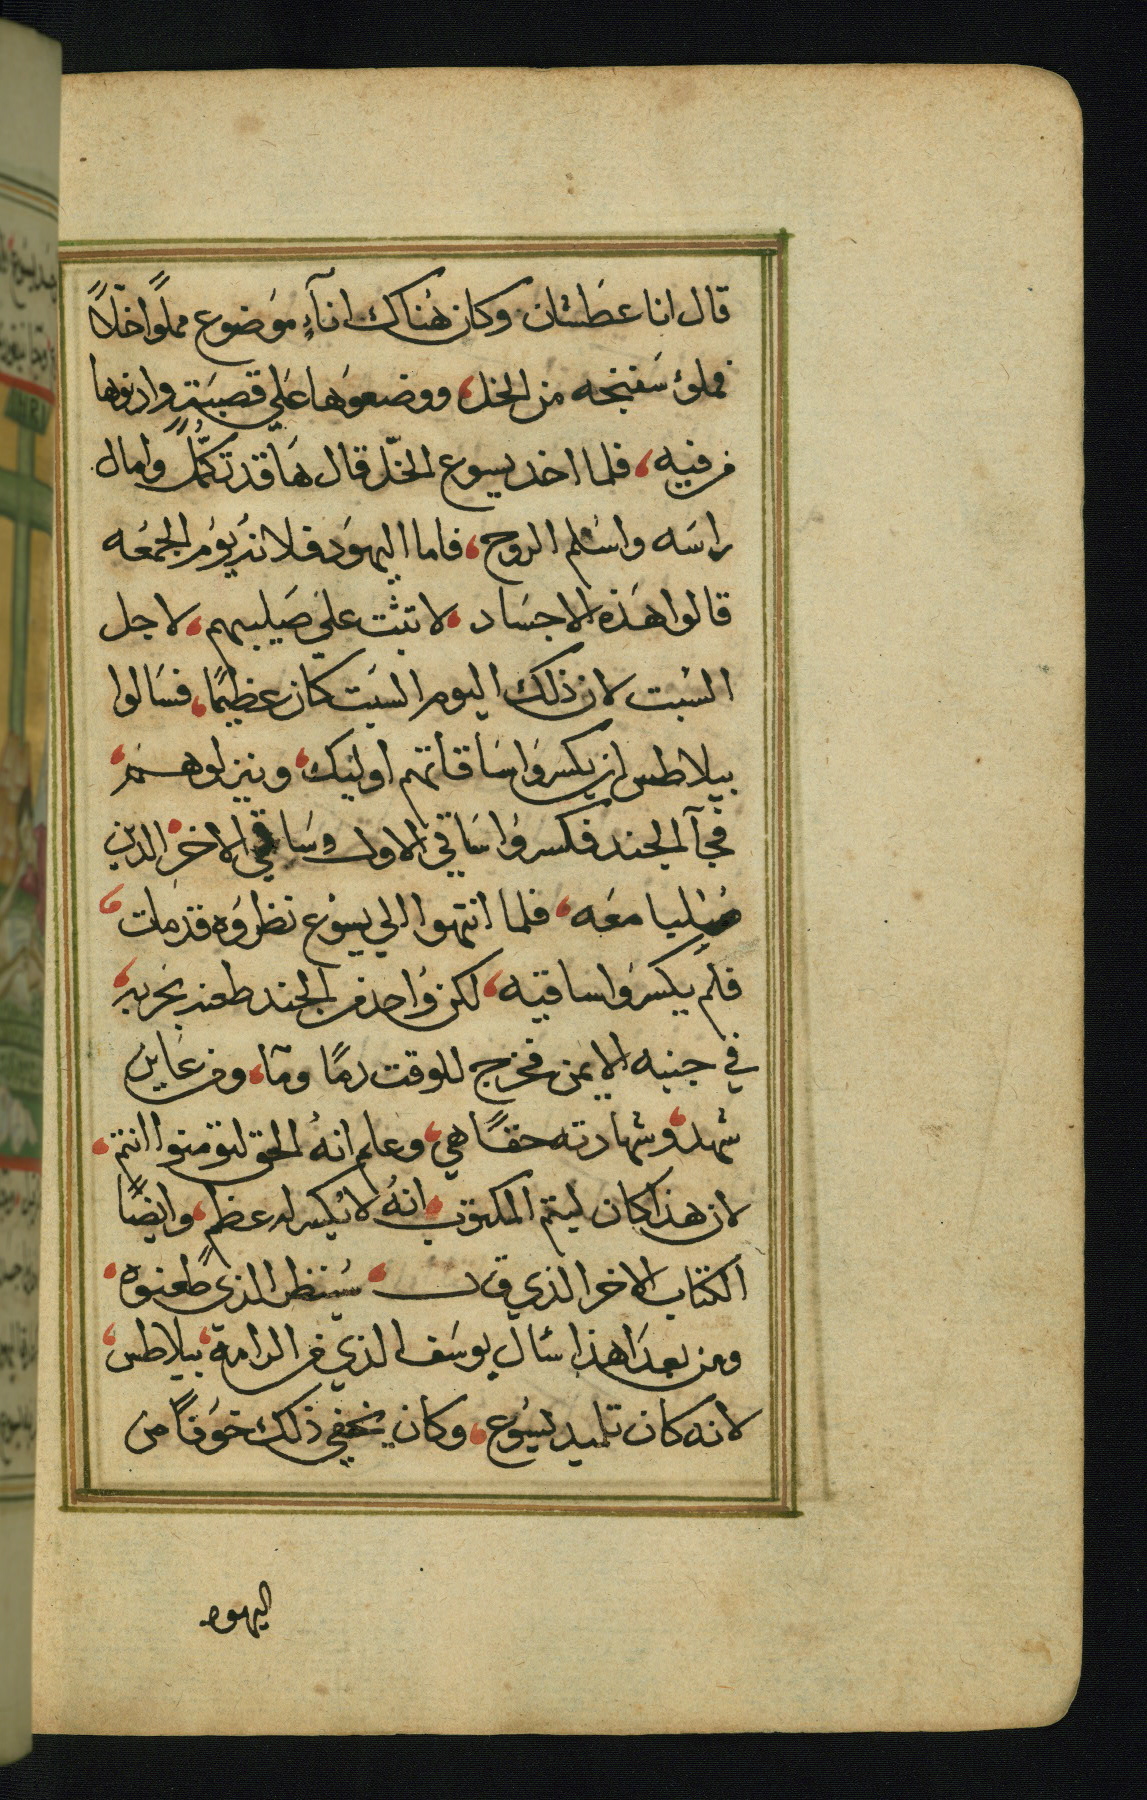 قال انا عطشان وكان هُناك انآءٍ مَوضوع مملوًا خلّاً
فملوُ سَفنجه من الخل، ووضعوَها عَلي قصبَةٍ وادنوها
من فيه، فلما اخد يسوع الخلّ قال هَا قد تكمَّل وامال
راسَه واسْلم الروح، فاما اليهوَد فلانه يوُم الجمعُه
قالوا هَذه الاجسَاد، لا تثبت علي صَيلبهم، لاجل
السْبت لان ذلك اليوم السَبت كان عظيمًا، فسَالوا
بيلاطس ان يكسرَوا سَاقاتهم اوليك، وينزلوهـم،
فجآ الجند فكسرُوا سَاقي الاول وسَاقي الاخر، الدين
صُلبا معَه، فلما انتهوا الي يسوُع نظروَه قد مات،
فلم يكسرَوا ساقيه، لكن وُاحد من الجند طعنه بحربه،
في جنبه الايمن فخرج للوقت دمًا ومآ، ومن عَاين
شهد، وشهادته حقًا هي، وعلم انهُ الحق لتومنوا انتم،
لان هذا كان ليتم المكتوب، انهُ لا يُكسر له عظمٍ، وايضًا
الكتاب الاخر الذي قال، سَينظر الذي طعنوه،
ومن بعدَ هذا سَال يوسَف الذي من الرامة، بيلاطس،
لانه كان تلميد ليسُوع، وكان يخفي ذلك خوَفاً من
اليهود